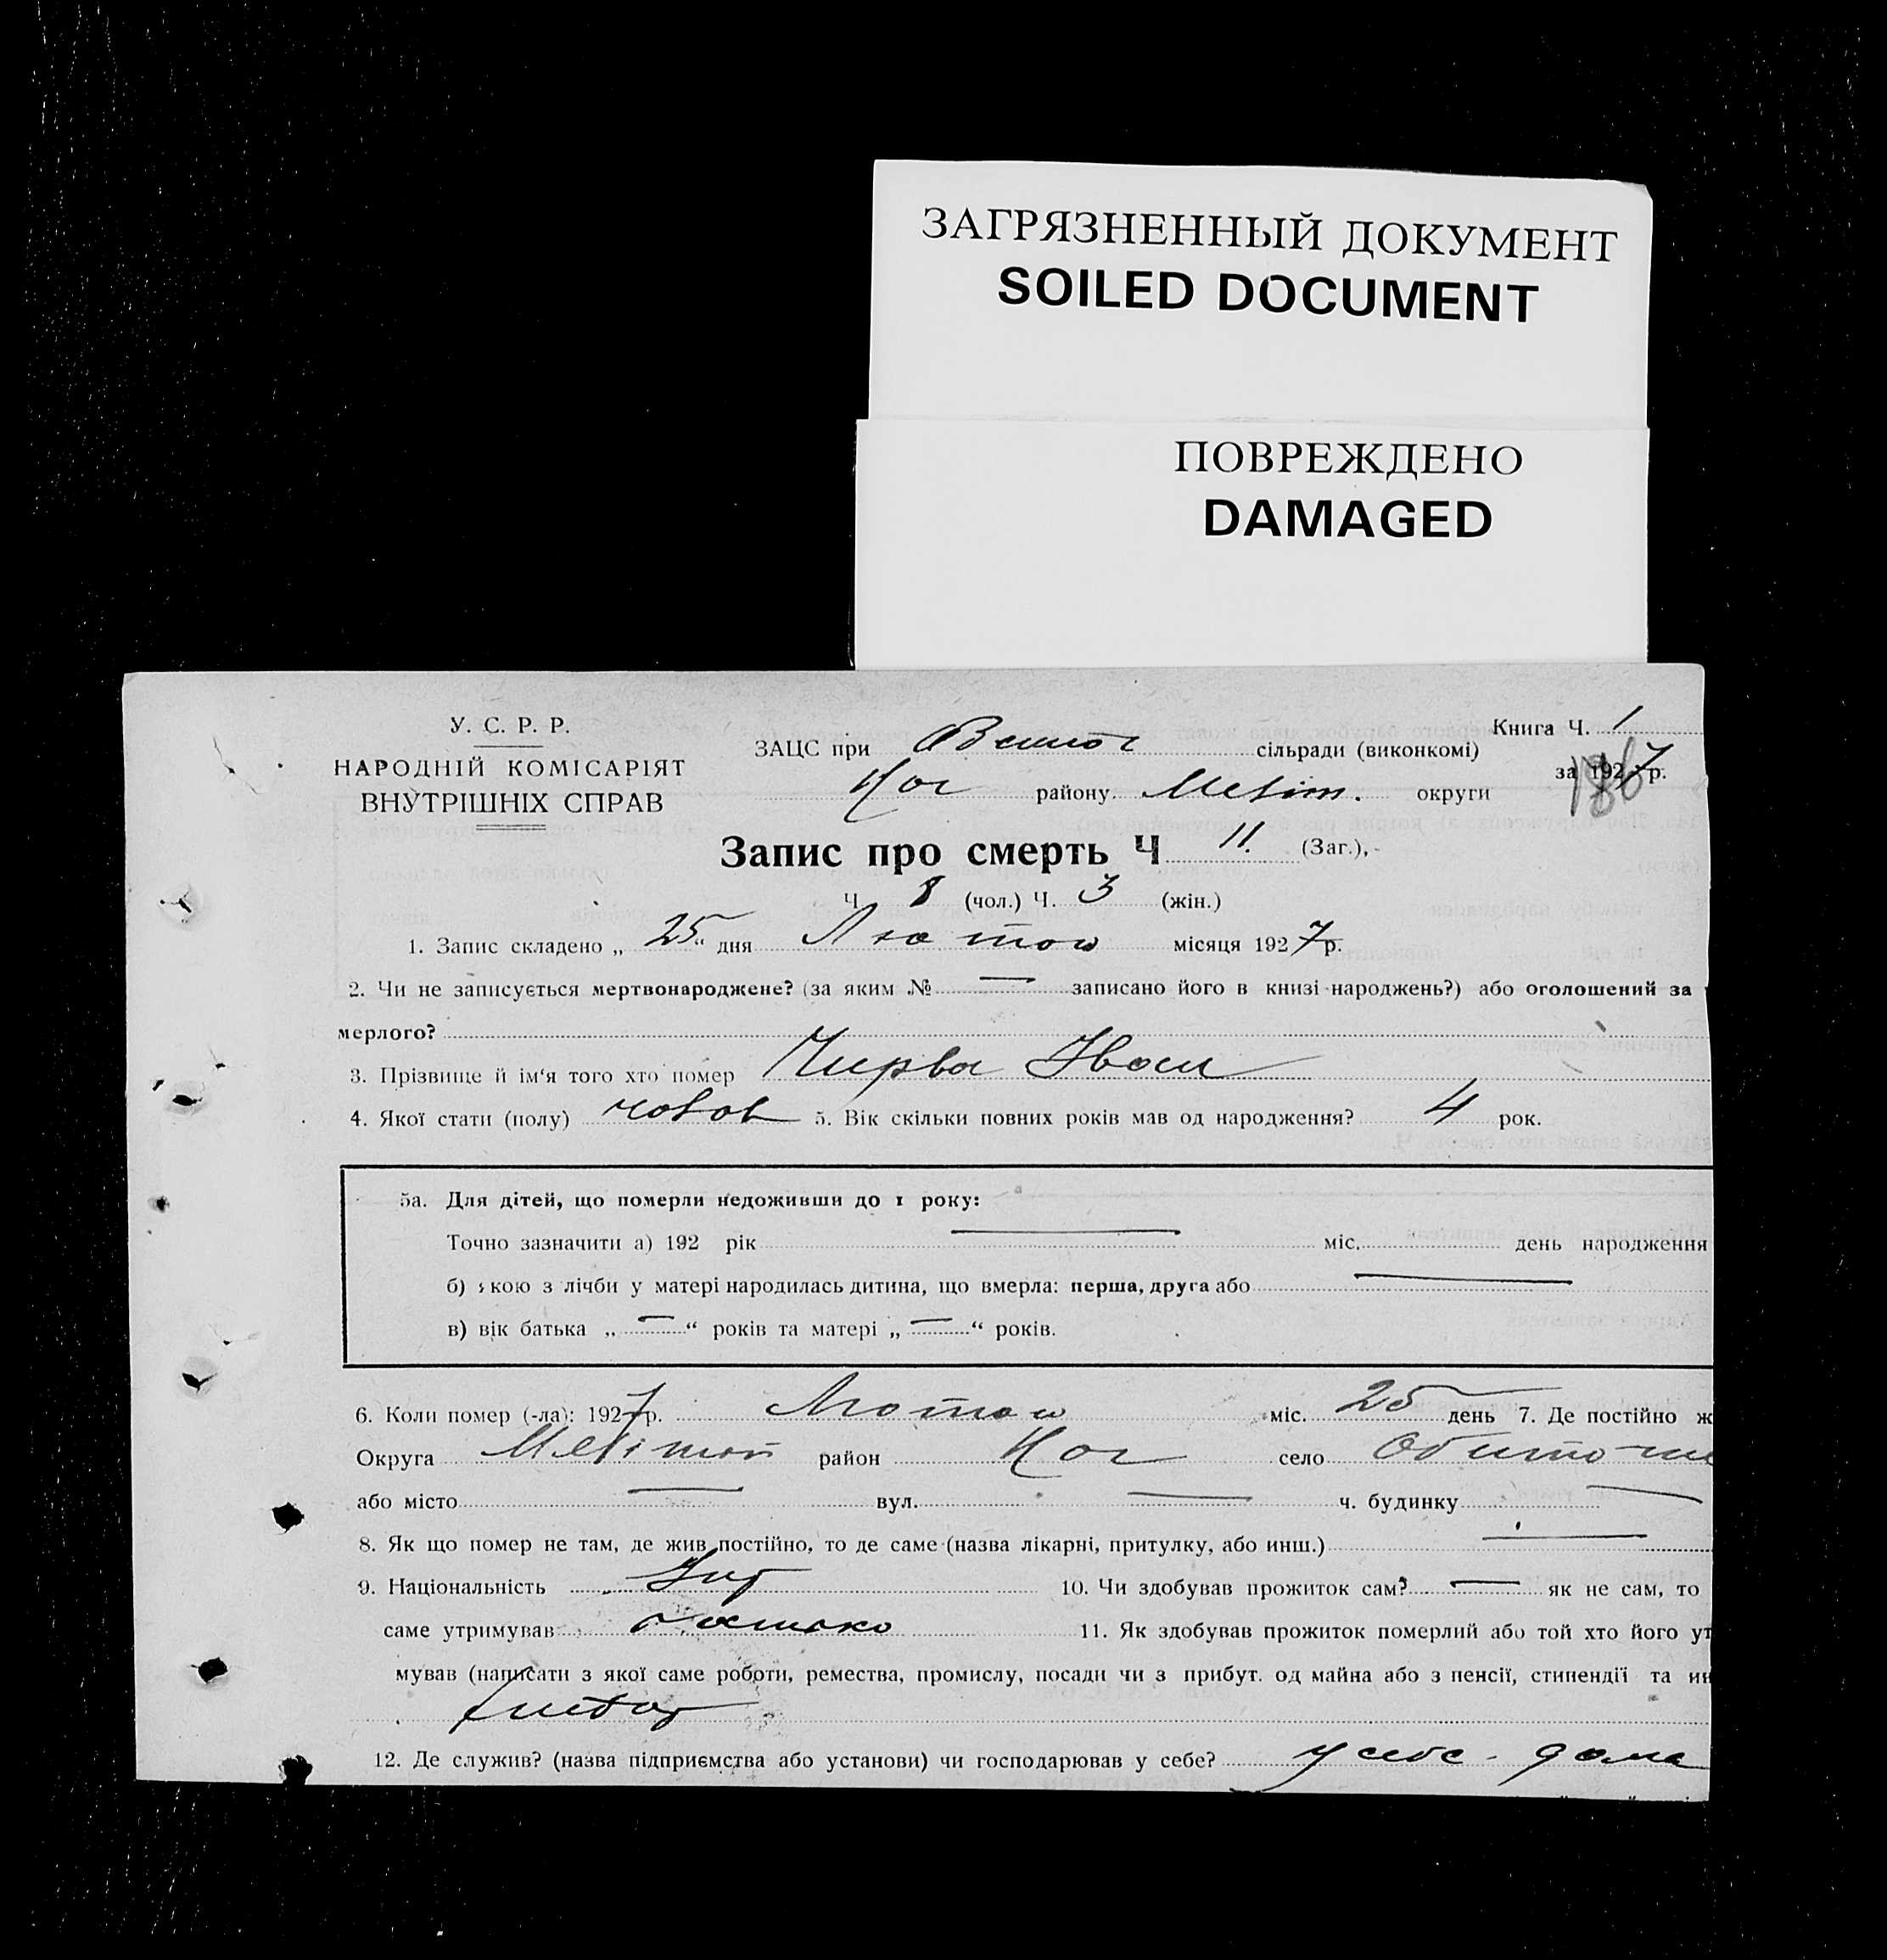 ЗАГРЯЗНЕННЫЙ ДОКУМЕНТ
SOILED DOCUMENT
ПОВРЕЖДЕНО
DAMAGED
У. С. Р. Р.
НАРОДНІЙ КОМІСАРІЯТ
ВНУТРІШНІХ СПРАВ
Книга Ч. 1
за 1927 р.
ЗАЦС при сільради (виконкомі)
Ног району Меліт. округи
Запис про смерть Ч 11. (Заг.),
Ч 8 (чол.) Ч. 3 (жін.)
1. Запис складено „ 25 “ дня Лютого місяця 1927 р.
2. Чи не записується мертвонароджене? (за яким № — записано його в книзі народжень?) або оголошений за
мерлого?
3. Прізвище й ім‘я того хто помер Чирва Іван
4. Якої стати (полу) чолов 5. Вік скільки повних років мав од народження? 4 рок.
5а. Для дітей, що померли недоживши до 1 року:
Точно зазначити а) 192 рік — міс. день народження
б) кою з лічби у матері народилась дитина, що вмерла: перша, друга або —
в) вік батька „ — “ років та матері „ — “ років.
6. Коли помер (-ла): 1927 р. Лютого міс. 25 день 7. Де постійно ж
Округа Меліт район Ног село Обиточне
або місто — вул. — ч. будинку —
8. Як що помер не там, де жив постійно, то де саме (назва лікарні, притулку, або инш.) —
9. Національність Укр 10. Чи здобував прожиток сам? — як не сам, то
саме утримував батько 11. Як здобував прожиток померлий або той хто його ут
мував (написати з якої саме роботи, ремества, промислу, посади чи з прибут. од майна або з пенсії, стипендії та ин
хлібор
12. Де служив? (назва підприємства або установи) чи господарював у себе? у себе - дома